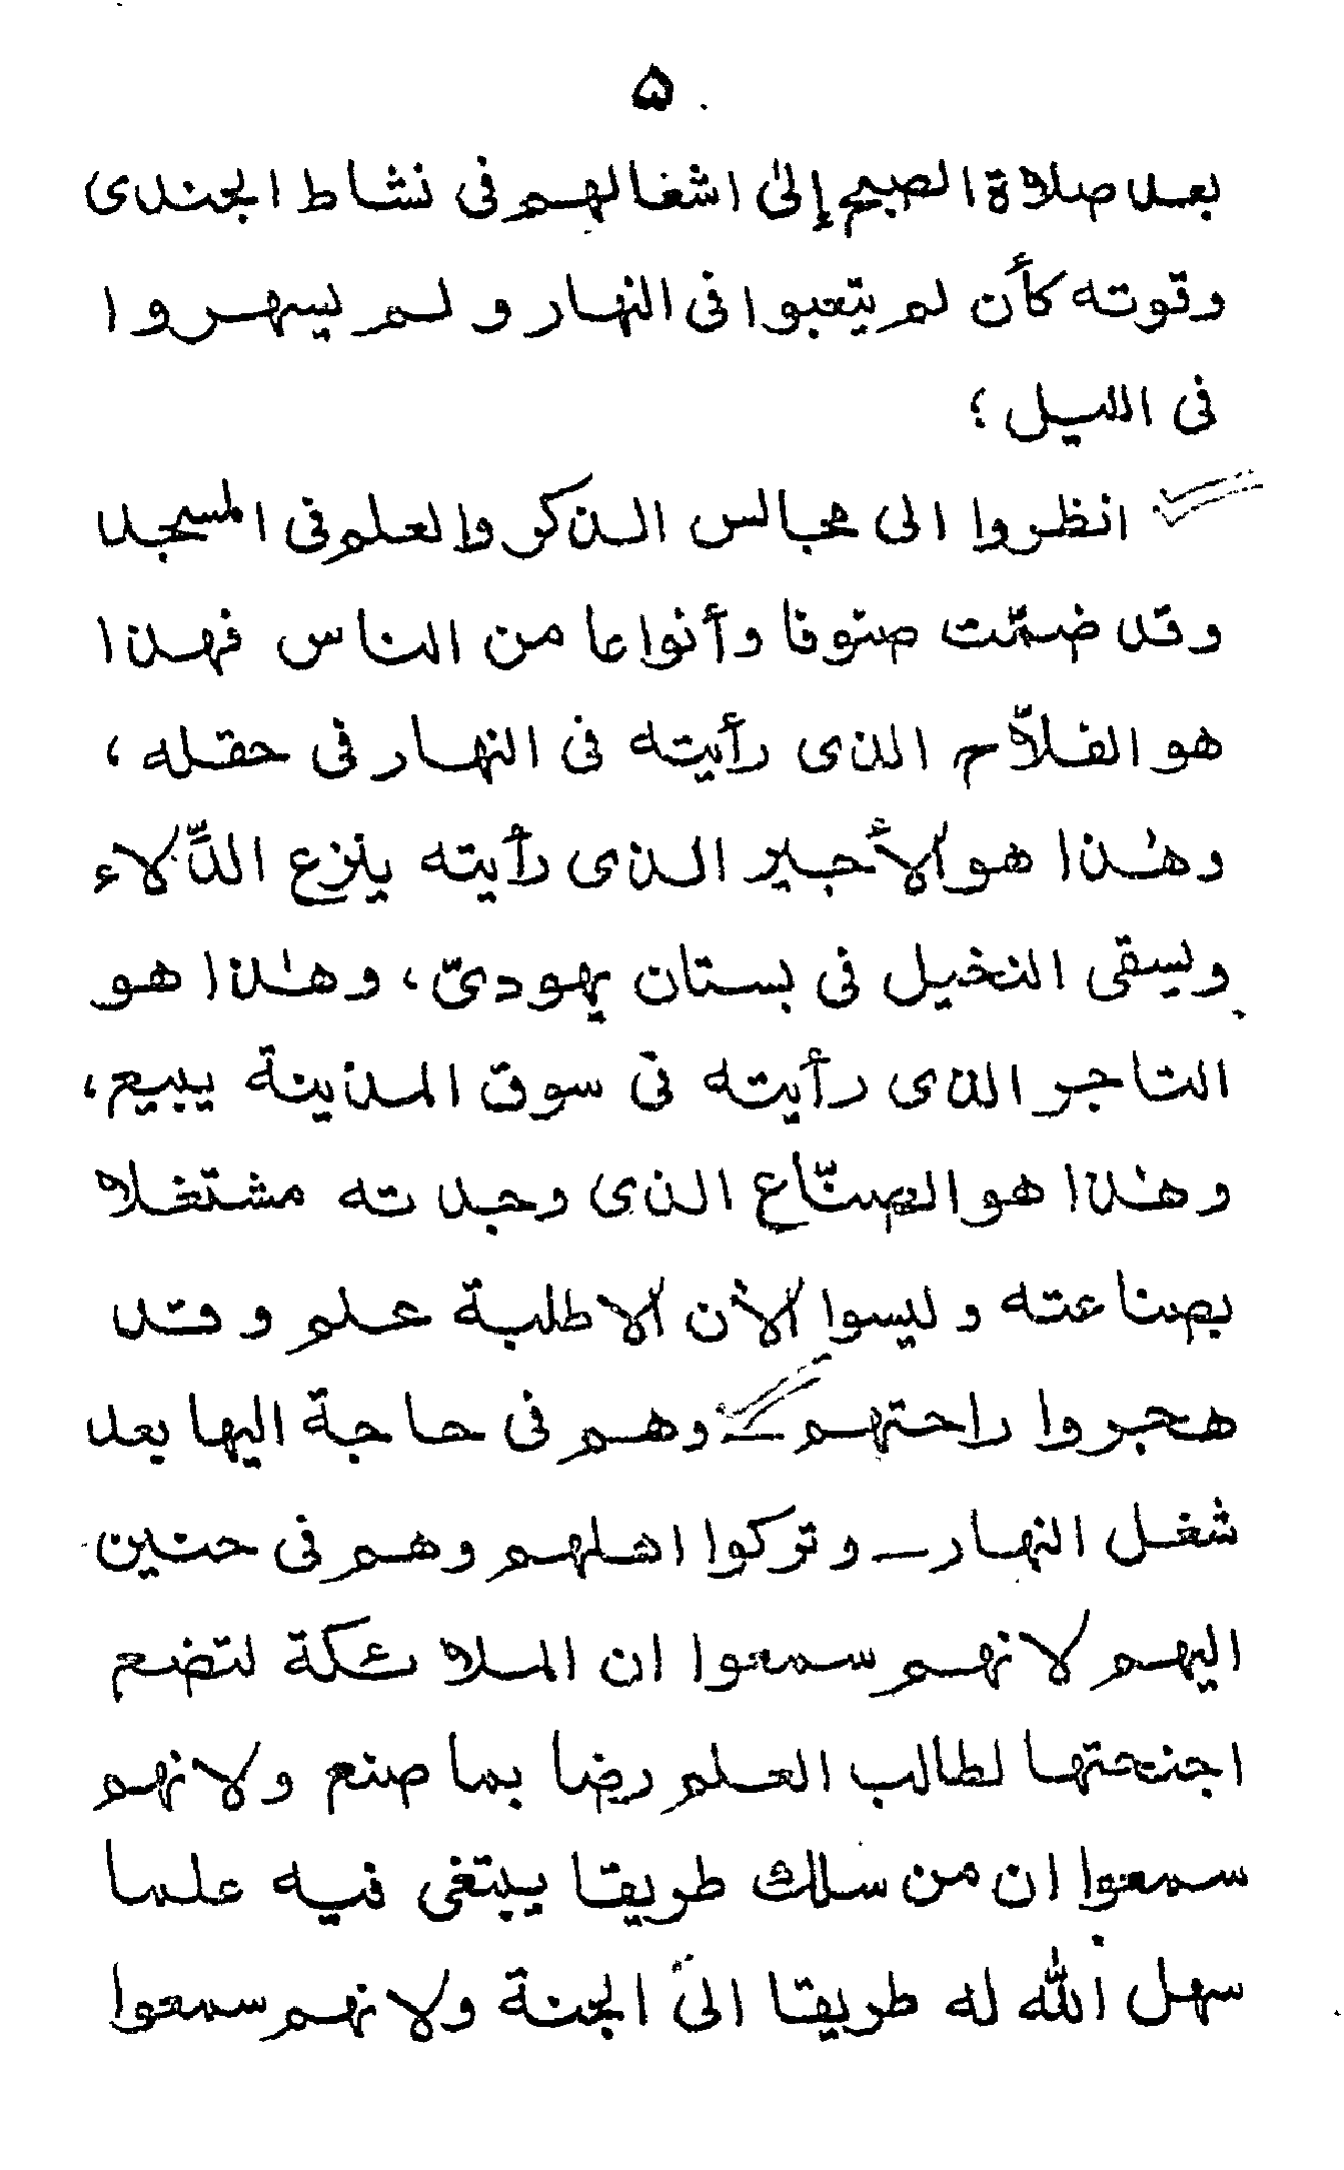 ۵
بعد صلاة الصبح إلى اشغالهم فى نشاط الجندى
وقوته كأن لم يتعبوا فى النهار و لم يسهروا
فى الليل ؛
انظروا الى مجالس الذكر والعلم فى المسجد
وقد ضمّت صنوفا وأنواعا من الناس فهذا
هو الفلاّح الذى رأيته فى النهار فى حقله ،
وهٰذا هو الأجير الذى رأيته ينزع الدِّلاء
ويسقى النخيل فى بستان يهودىّ ، وهٰذا هو
التاجر الذى رأيته فى سوق المدينة يبيع ،
وهٰذا هو الصنّاع الذى وجدته مشتغلا
بصناعته و ليسوا الأن الا طلبة علم و قد
هجروا راحتهم ــ وهم فى حاجة اليها بعد
شغل النهار ــ و تركوا اهلهم وهم فى حنين
اليهم لانهم سمعوا ان الملائكة لتضع
اجنحتها لطالب العلم رضا بما صنع ولانهم
سمعوا ان من سلك طريقا يبتغى فيه علما
سهل الله له طريقا الى الجنة ولانهم سمعوا